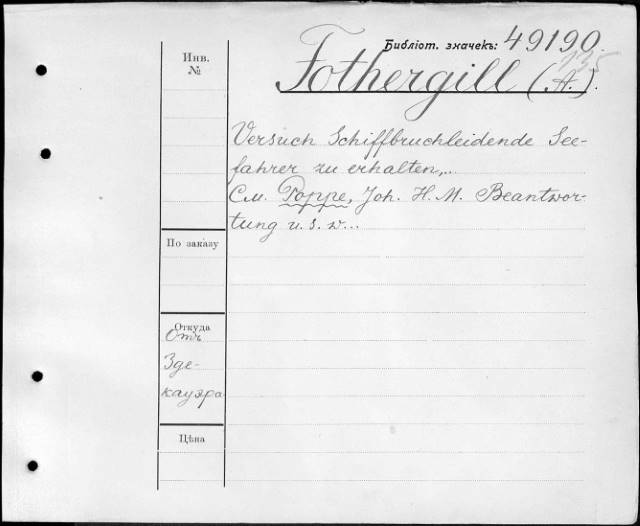 Библіот. значекъ: 49190.
135
Инв.
№
Fothergill (A.).
Versuch Schiffbruchleidende See-
fahrer zu erhalten,..
См. Poppe, Joh. H. M. Beantwor-
tung u. s. w...
По заказу
Откуда
Отъ
Зде-
кауэра
Цѣна